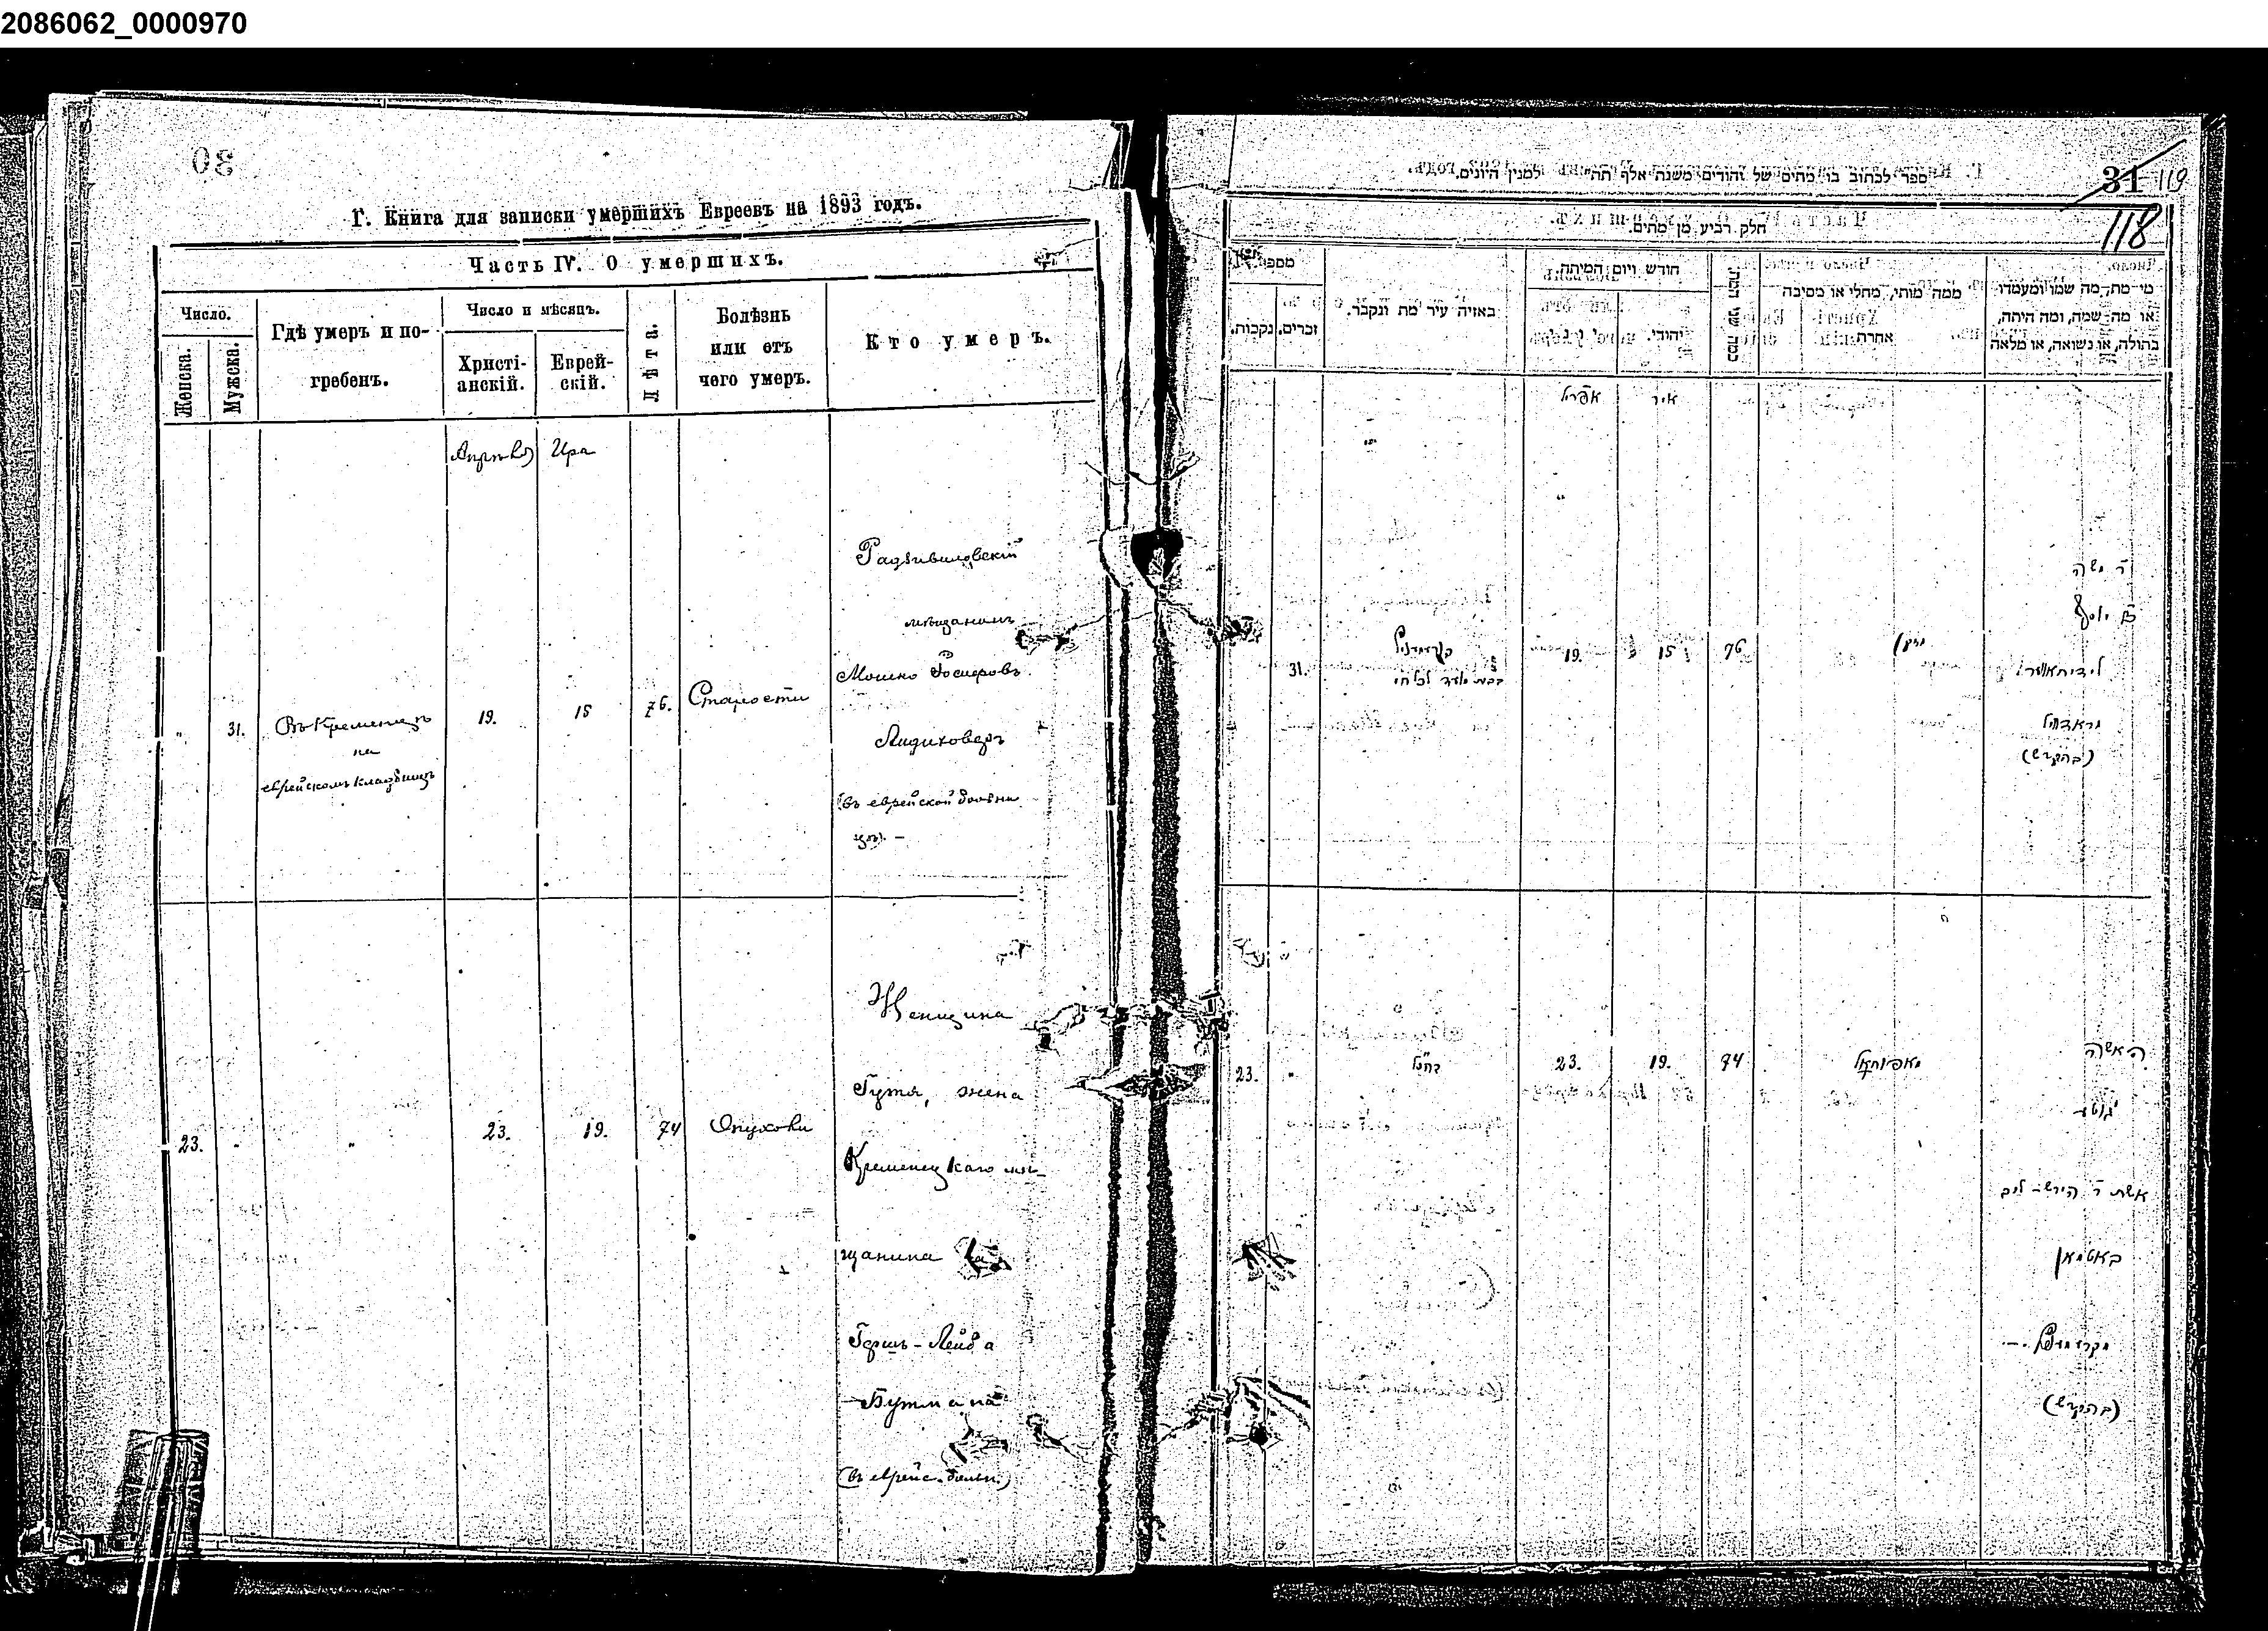 2086062_0000970
Г. Книга для записки умершихъ Евреевъ на 1893 годъ.
Часть IV. О умершихъ.
Число.
Женска.
Мужска.
Гдѣ умеръ и по-
гребенъ.
Число и мѣсяцъ.
Христі-
анскій.
Еврей-
скій.
Лѣта.
Болѣзнь
или отъ
чего умеръ.
Кто умеръ.
Апрѣль
Ира
31.
Въ Кременцѣ
на
еврейскомъ кладбищѣ
19.
15
76.
Старости
Радзивиловскій
мѣщанинъ
Мошко Іосифовъ
Лидиховеръ
(въ еврейской больни
цѣ). –
23.
23.
19.
74
Опухоли
Женщина
Гутя, жена
Кременецкаго мѣ-
щанина
Гершъ-Лейба
Бутмана
(въ еврейс. больн.)
ספר לכתוב בו מתים של יהודים משנת אלף תת למנין היונים.
31
119
118
חלק רביעי מן מתים.
מספר
נקבות.
זכרים.
באיזה עיר מת ונקבר.
חודש ויום המיתה.
יהודי.
כמה שני המת
ממה מותו, מחלי או מסיבה
אחרת.
מי מת, מה שמו ומעמדו
או מה שמה, ומה היתה,
בתולה, או נשואה, או מלאה
אפריל
איר
31.
19.
15
76
זקן
ר' משה
ב"ר יוסף
מראדזויל
(בהקדש)
23.
23.
19.
74
האשה
גוטי
אשת ר' הירש-ליב
באטמאן
(בהקדש)